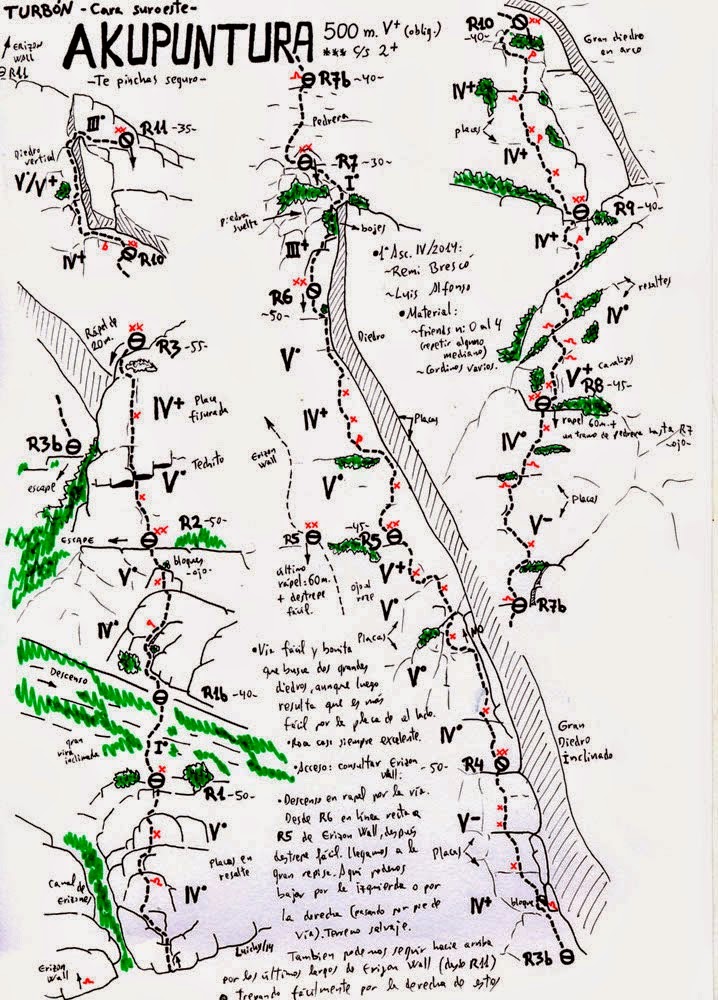 TURBÓN - Cara suroeste-
AKUPUNTURA
500 m. V+ (oblig.)
*** c/s 2+
-Te pinchas seguro-
ERIZON
WALL
R11
III°
R11 -35-
Diedro
vertical
V°/V+
IV+
R10
Rápel de
20m.
R3 -55-
IV+
Placa
fisurada
R3b
escape
Techito
V°
R2 -50-
ESCAPE
V°
bloques
-ojo-
IV°
Descenso
R1b -40-
gran
vira
inclinada
I°
R1 -50-
V°
placas en
resalte
IV°
Canal de
Erizones
Erizon
Wall
R7b -40-
Pedrera
R7 -30-
I°
piedra
suelta
bojes
III+
R6
-50-
Diedro
V°
IV+
Placas
Erizon
Wall
V°
R5
-45-
R5
último
rápel=60m.
+ destrepe
fácil.
V+
ojo al
roze
V°
Placas
NO
V°
IV°
R4 -50-
V-
Placas
IV+
bloque
R3b
Gran
Diedro
Inclinado
•1ª Asc. IV/2014:
~Remi Brescó
~Luis Alfonso
•Material:
~friends n: 0 al 4
(repetir alguno
mediano)
~Cordinos varios.
•Vía fácil y bonita
que busca dos grandes
diedros, aunque luego
resulta que es más
fácil por la placa de al lado.
•Roca casi siempre excelente.
•Acceso: consultar Erizon
Wall.
•Descenso en rapel por la vía.
Desde R6 en línea recta a
R5 de Erizon Wall, después
destrepe fácil. Llegamos a la
gran repisa. Aquí podemos
bajar por la izquierda o por
la derecha (pasando por pie de
vía). Terreno salvaje.
Luichy/14
Tambien podemos seguir hacia arriba
por los últimos largos de Erizon Wall (desde R11)
o trepando fácilmente por la derecha de estos
R10
-40-
Gran diedro
en arco
IV+
placas
IV+
R9 -40-
IV+
resaltes
IV°
V+
canalizo
R8 -45-
IV°
rapel 60m. +
un tramo de pedrera hasta R7
-ojo-
Placas
V-
R7b